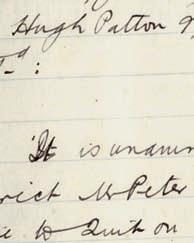 Hugh Patton 9
It is unanim
rict Mr Peter
e to Quit on